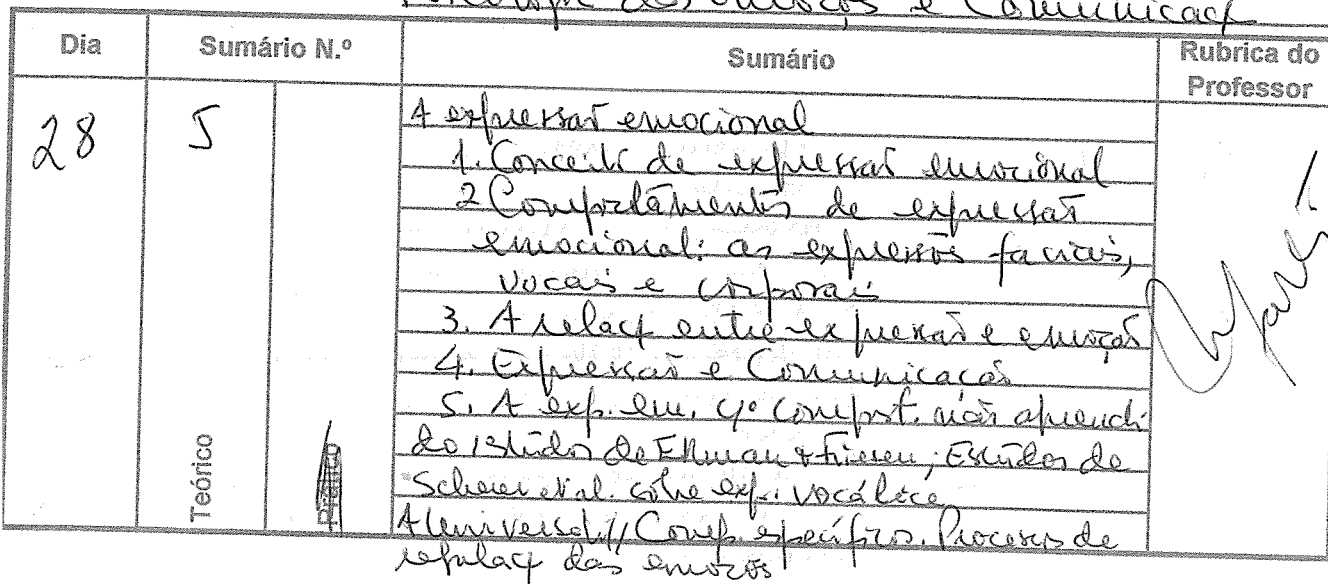 Psicologia das emoções e Comunicaç
Dia
Sumário N.º
Sumário
Rubrica do
Professor
28
5
A expressão emocional
1. Conceito de expressão emocional
2 Comportamentos de expressão
emocional: as expressões faciais,
vocais e corporais
3. A relaç entre expressão e emoção
4. Expressão e Comunicação
5. A exp. em. cº comport. não aprendi
do Estudos de Ekman & Friesen; Estudos de
Scherer et al. sobre exp. vocálica
A universal. // Comp. específicos. Processos de
regulaç das emoções
Teórico
Prático